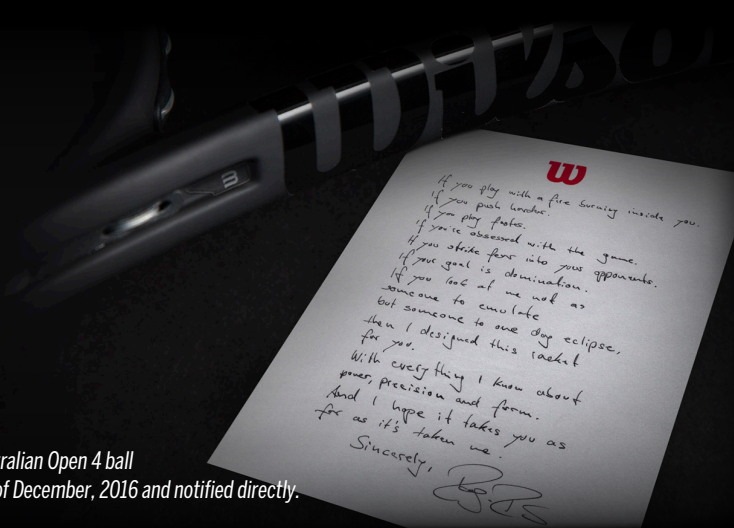 Wilson
W
If you play with a fire burning inside you.
If you push harder.
If you play faster.
If you're obsessed with the game.
If you strike fear into your opponents.
If your goal is domination.
If you look at me not as
someone to emulate
but someone to one day eclipse,
then I designed this racket
for you.
With everything I know about
power, precision and form.
And I hope it takes you as
far as it's taken me.
Sincerely,
ralian Open 4 ball
of December, 2016 and notified directly.